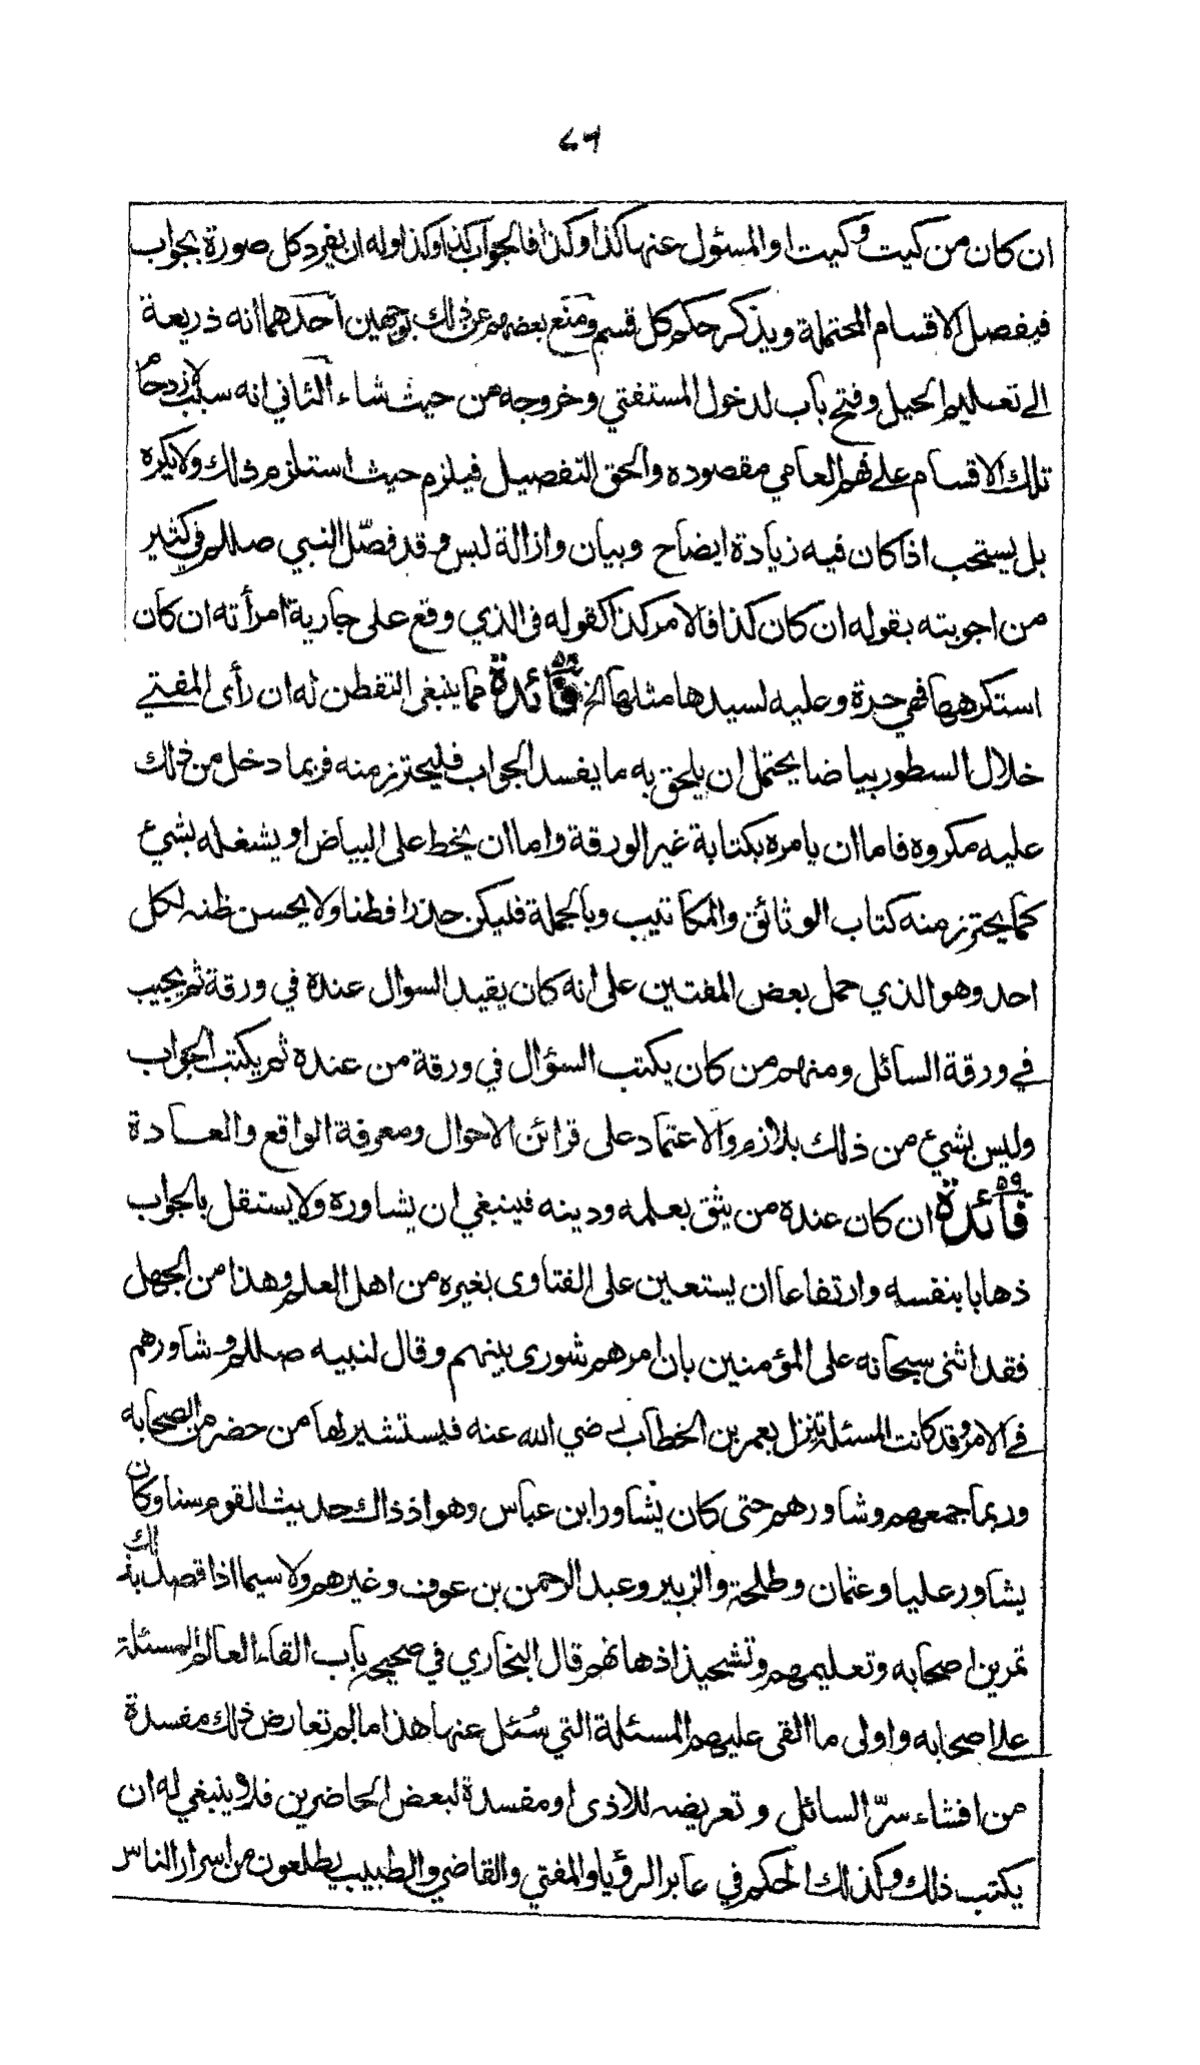 ٧٦
ان كان من كيت وكيت او المسئول عنها كذا وكذا فالجواب كذا وكذا وله ان يفرد كل صورة بجواب
فيفصل الاقسام المحتملة ويذكر حكم كل قسم ومنع بعضهم عن ذلك بوجهين احدهما انه ذريعة
الى تعليم الحيل وفتح باب لدخول المستفتي وخروجه من حيث شاء الثاني انه سبب لازدحام
تلك الاقسام على فهم العامي مقصوده والحق التفصيل فيلزم حيث استلزم ذلك ولا يكره
بل يستحب اذا كان فيه زيادة ايضاح وبيان وازالة لبس وقد فصّل النبي صللم في كثير
من اجوبته بقوله ان كان كذا فالامر كذا كقوله في الذي وقع على جارية امرأته ان كان
استكرهها فهي حرة وعليه لسيدها مثلها الخ فائدة ٥٨ مما ينبغي التفطن له ان رأى المفتي
خلال السطور بياضا يحتمل ان يلحق به ما يفسد الجواب فليحترز منه فربما دخل من ذلك
عليه مكروه فاما ان يامره بكتابة غير الورقة واما ان يخط على البياض او يشغله بشيئ
كما يحترز منه كتاب الوثائق والمكاتيب وبالجملة فليكن حذرا فطنا ولا يحسن ظنه لكل
احد وهو الذي حمل بعض المفتين على انه كان يقيد السوال عنده في ورقة ثم يجيب
في ورقة السائل ومنهم من كان يكتب السؤال في ورقة من عنده ثم يكتب الجواب
وليس بشيئ من ذلك بلازم والاعتماد على قرائن الاحوال ومعرفة الواقع والعادة
فائدة ٥٩ ان كان عنده من يثق بعلمه ودينه فينبغي ان يشاوره ولا يستقل بالجواب
ذهابا بنفسه وارتفاعا ان يستعين على الفتاوى بغيره من اهل العلم وهذا من الجهل
فقد اثنى سبحانه على المؤمنين بان امرهم شورى بينهم وقال لنبيه صللم وشاورهم
في الامر وقد كانت المسئلة تنزل بعمر بن الخطاب رضي الله عنه فيستشير لها من حضر من الصحابه
وربما جمعهم وشاورهم حتى كان يشاور ابن عباس وهو اذ ذاك حديث القوم سنا وكان
يشاور عليا وعثمان وطلحة والزبير وعبد الرحمن بن عوف وغيرهم ولا سيما اذا قصد بذلك
تمرين اصحابه وتعليمهم وتشحيذ اذهانهم قال البخاري في صحيحه باب القاء العالم المسئلة
على اصحابه واولى ما القى عليهم المسئلة التي سُئل عنها هذا ما لم تعارض ذلك مفسدة
من افشاء سرّ السائل وتعريضه للاذى او مفسدة لبعض الحاضرين فلا ينبغي له ان
يكتب ذلك وكذلك الحكم في عابر الرؤيا والمفتي والقاضي والطبيب يطلعون من اسرار الناس